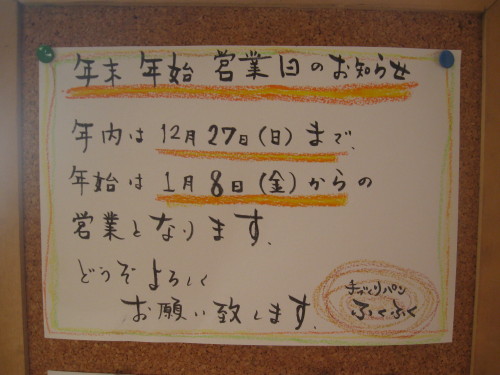 年末 年始 営業日のお知らせ
年内は 12月27日(日)まで、
年始は 1月8日(金)からの
営業となります。
どうぞよろしく
お願い致します。
手づくりパン
ふくふく